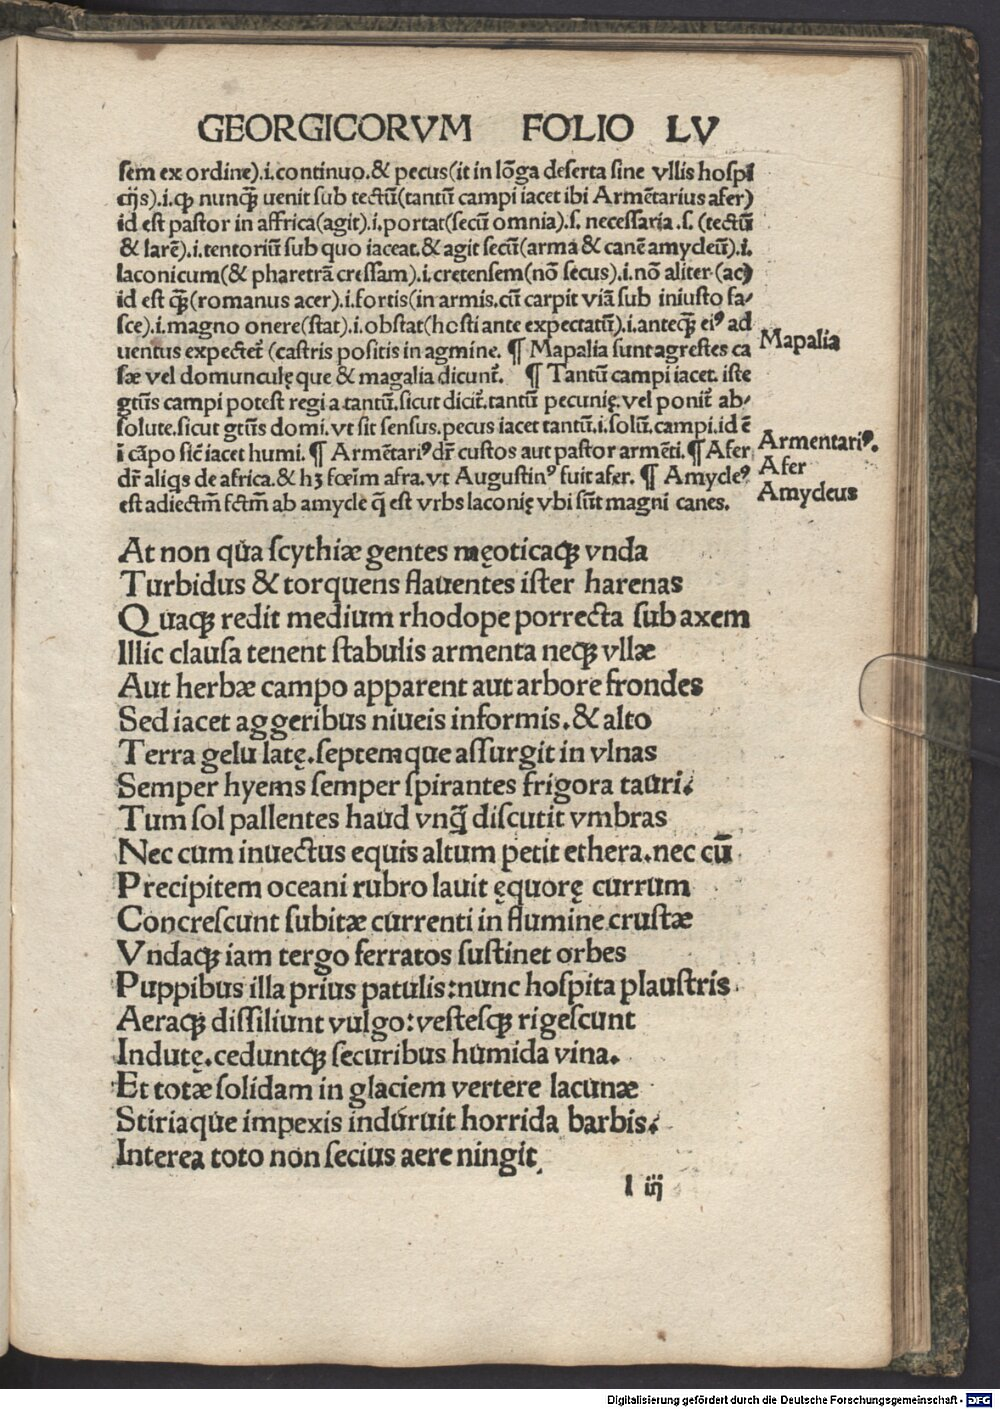 GEORGICORVM FOLIO LV
ſem ex ordine).i.continuo.& pecus(it in lōga deſerta ſine vllis hoſpi
cijs).i.ꝙ nunqᷓ uenit ſub tectū(tantū campi iacet ibi Armētarius afer)
id est paſtor in affrica(agit).i.portat(ſecū omnia).ſ. neceſſaria.ſ.(tectū
& larē).i.tentoriū ſub quo iaceat.& agit ſecū(arma & canē amycleū).i.
laconicum(& pharetrā creſſam).i.cretenſem(nō ſecus).i.nō aliter(ac)
id eſt qᷓ(romanus acer).i.fortis(in armis.cū carpit viā ſub iniuſto fa/
ſce).i.magno onere(ſtat).i.obſtat(hoſti ante expectatū).i.anteqᷓ eiꝰ ad
uentus expectet̃ (caſtris poſitis in agmine. ¶ Mapalia ſunt agreſtes ca
ſæ vel domunculę que & magalia dicunt̃. ¶ Tantū campi iacet. iſte
gtūs campi poteſt regi a tantū.ſicut dicit̃.tantū pecunię.vel ponit̃ ab/
ſolute.ſicut gtūs domi.vt ſit ſenſus.pecus iacet tantū.i.ſolū.campi.id ē
ī cāpo ſic̄ iacet humi. ¶ Armētariꝰ dr̃ cuſtos aut paſtor armēti. ¶ Afer
dr̃ aliqs de africa.& hꝫ fœim afra.vt Auguſtinꝰ fuit afer. ¶ Amycleꝰ
eſt adiectm̄ fctm̄ ab amycle q̄ eſt vrbs laconię vbi ſūt magni canes.
Mapalia
Armentariꝰ.
Afer
Amycleus
At non qua ſcythiæ gentes męoticaqꝫ vnda
Turbidus & torquens flauentes iſter harenas
Quaqꝫ redit medium rhodope porrecta ſub axem
Illic clauſa tenent ſtabulis armenta neqꝫ vllæ
Aut herbæ campo apparent aut arbore frondes
Sed iacet aggeribus niueis informis.& alto
Terra gelu latę.ſeptemque aſſurgit in vlnas
Semper hyems ſemper ſpirantes frigora tauri.
Tum ſol pallentes haud vnqᷓ diſcutit vmbras
Nec cum inuectus equis altum petit ethera.nec cū
Precipitem oceani rubro lauit ęquorę currum
Concreſcunt ſubitæ currenti in flumine cruſtæ
Vndaqꝫ iam tergo ferratos ſuſtinet orbes
Puppibus illa prius patulis:nunc hoſpita plauſtris.
Aeraqꝫ diſſiliunt vulgo:veſteſqꝫ rigeſcunt
Indutę.ceduntqꝫ ſecuribus humida vina.
Et totæ ſolidam in glaciem vertere lacunæ
Stiriaque impexis induruit horrida barbis.
Interea toto non ſecius aere ningit
l iij
Digitalisierung gefördert durch die Deutsche Forschungsgemeinschaft - DFG